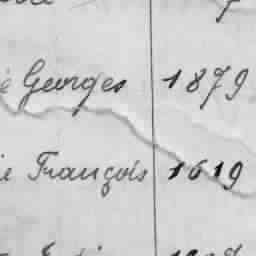 e Georges 1879
ie François 1619